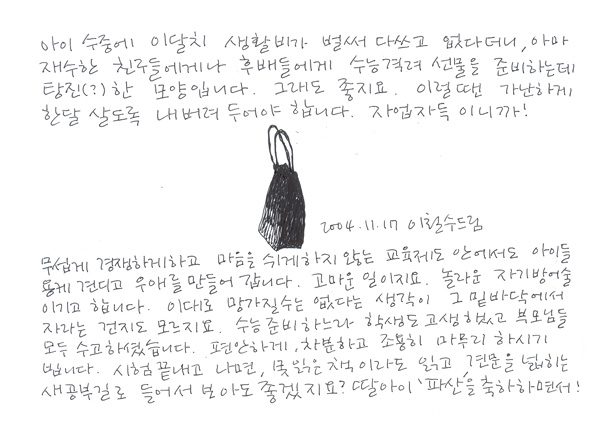 아이 수중에 이달치 생활비가 벌써 다쓰고 없다더니, 아마
재수한 친구들에게나 후배들에게 수능격려 선물을 준비하는데
탕진(?)한 모양입니다. 그래도 좋지요. 이럴땐 가난하게
한달 살도록 내버려 두어야 합니다. 자업자득 이니까!
2004.11.17 이철수드림
무섭게 경쟁하게하고 마음을 쉬게하지 않는 교육제도 안에서도 아이들
용케 견디고 우애를 만들어 갑니다. 고마운 일이지요. 놀라운 자기방어술
이기고 합니다. 이대로 망가질수는 없다는 생각이 그 밑바닥에서
자라는 건지도 모르지요. 수능준비하느라 학생도 고생했고 부모님들
모두 수고하셨습니다. 편안하게, 차분하고 조용히 마무리 하시기
빕니다. 시험끝내고 나면, 못읽은 책이라도 읽고, 견문을 넓히는
새공부길로 들어서 보아도 좋겠지요? 딸아이 '파산'을 축하하면서!